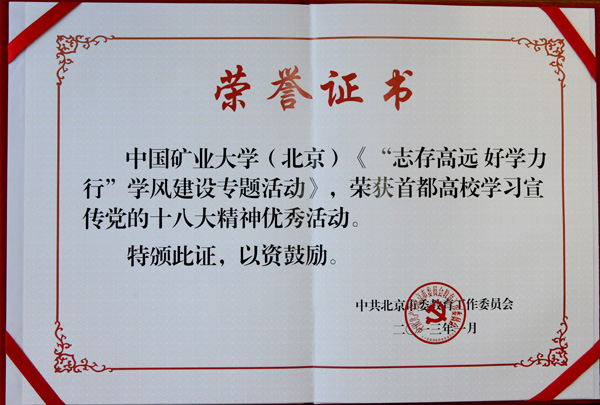 荣誉证书
中国矿业大学（北京）《“志存高远 好学力
行”学风建设专题活动》，荣获首都高校学习宣
传党的十八大精神优秀活动。
特颁此证，以资鼓励。
中共北京市委教育工作委员会
二〇一三年一月